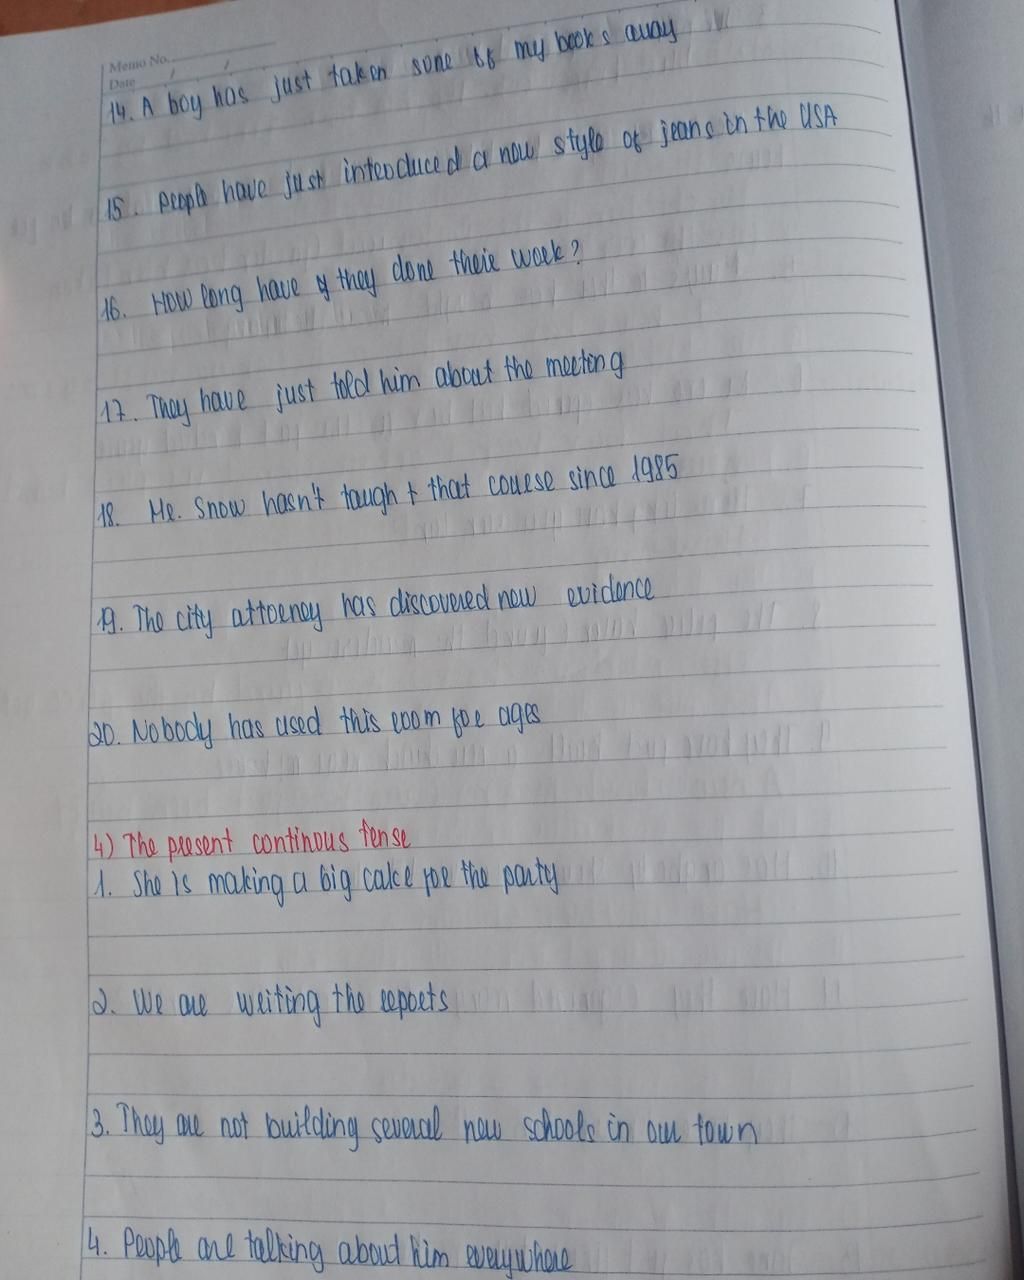 Memo No.
Date / /
14. A boy has just taken some of my books away
15. People have just introduced a new style of jeans in the USA
16. How long have they done their work?
17. They have just told him about the meeting
18. Mr. Snow hasn't taught that course since 1985
19. The city attorney has discovered new evidence
20. Nobody has used this room for ages
4) The present continous tense
1. She is making a big cake for the party
2. We are writing the reports
3. They are not building several new schools in our town
4. People are talking about him everywhere